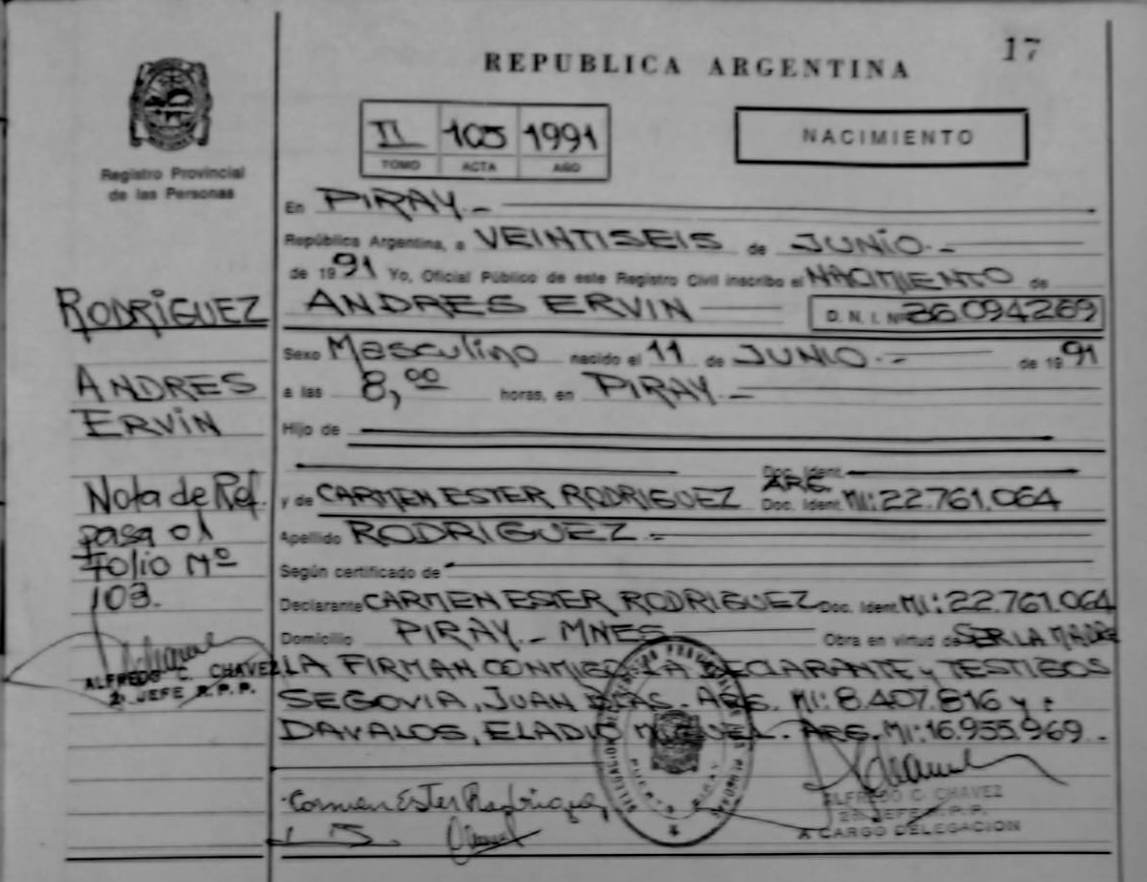 17
REPUBLICA ARGENTINA
II 105 1991
TOMO ACTA AÑO
NACIMIENTO
Registro Provincial
de las Personas
En PIRAY.-
República Argentina, a VEINTISEIS de JUNIO.-
de 1991 Yo, Oficial Público de este Registro Civil inscribo el NACIMIENTO de
ANDRES ERVIN D. N. I. Nº 36.094269
Sexo Masculino nacido el 11 de JUNIO.- de 1991
a las 8,00 horas, en PIRAY.-
Hijo de
Doc. Ident.
y de CARMEN ESTER RODRIGUEZ Doc. Ident. ARG. MI: 22.761.064
Apellido RODRIGUEZ.-
Según certificado de
Declarante CARMEN ESTER RODRIGUEZ Doc. Ident. MI: 22.761.064
Domicilio PIRAY.- MNES Obra en virtud de SER LA MADRE
LA FIRMAN CONMIGO LA DECLARANTE y TESTIGOS
SEGOVIA, JUAN ARG. MI: 8.407.816 y:
DAVALOS, ELADIO MIGUEL. ARG. MI: 16.955.969.
Carmen Ester Rodriguez
ALFREDO C. CHAVEZ
2º JEFE R.P.P.
A CARGO DELEGACION
RODRIGUEZ
ANDRES
ERVIN
Nota de Ref.
pasa al
Folio Nº
103.
ALFREDO C. CHAVEZ
2º JEFE R.P.P.